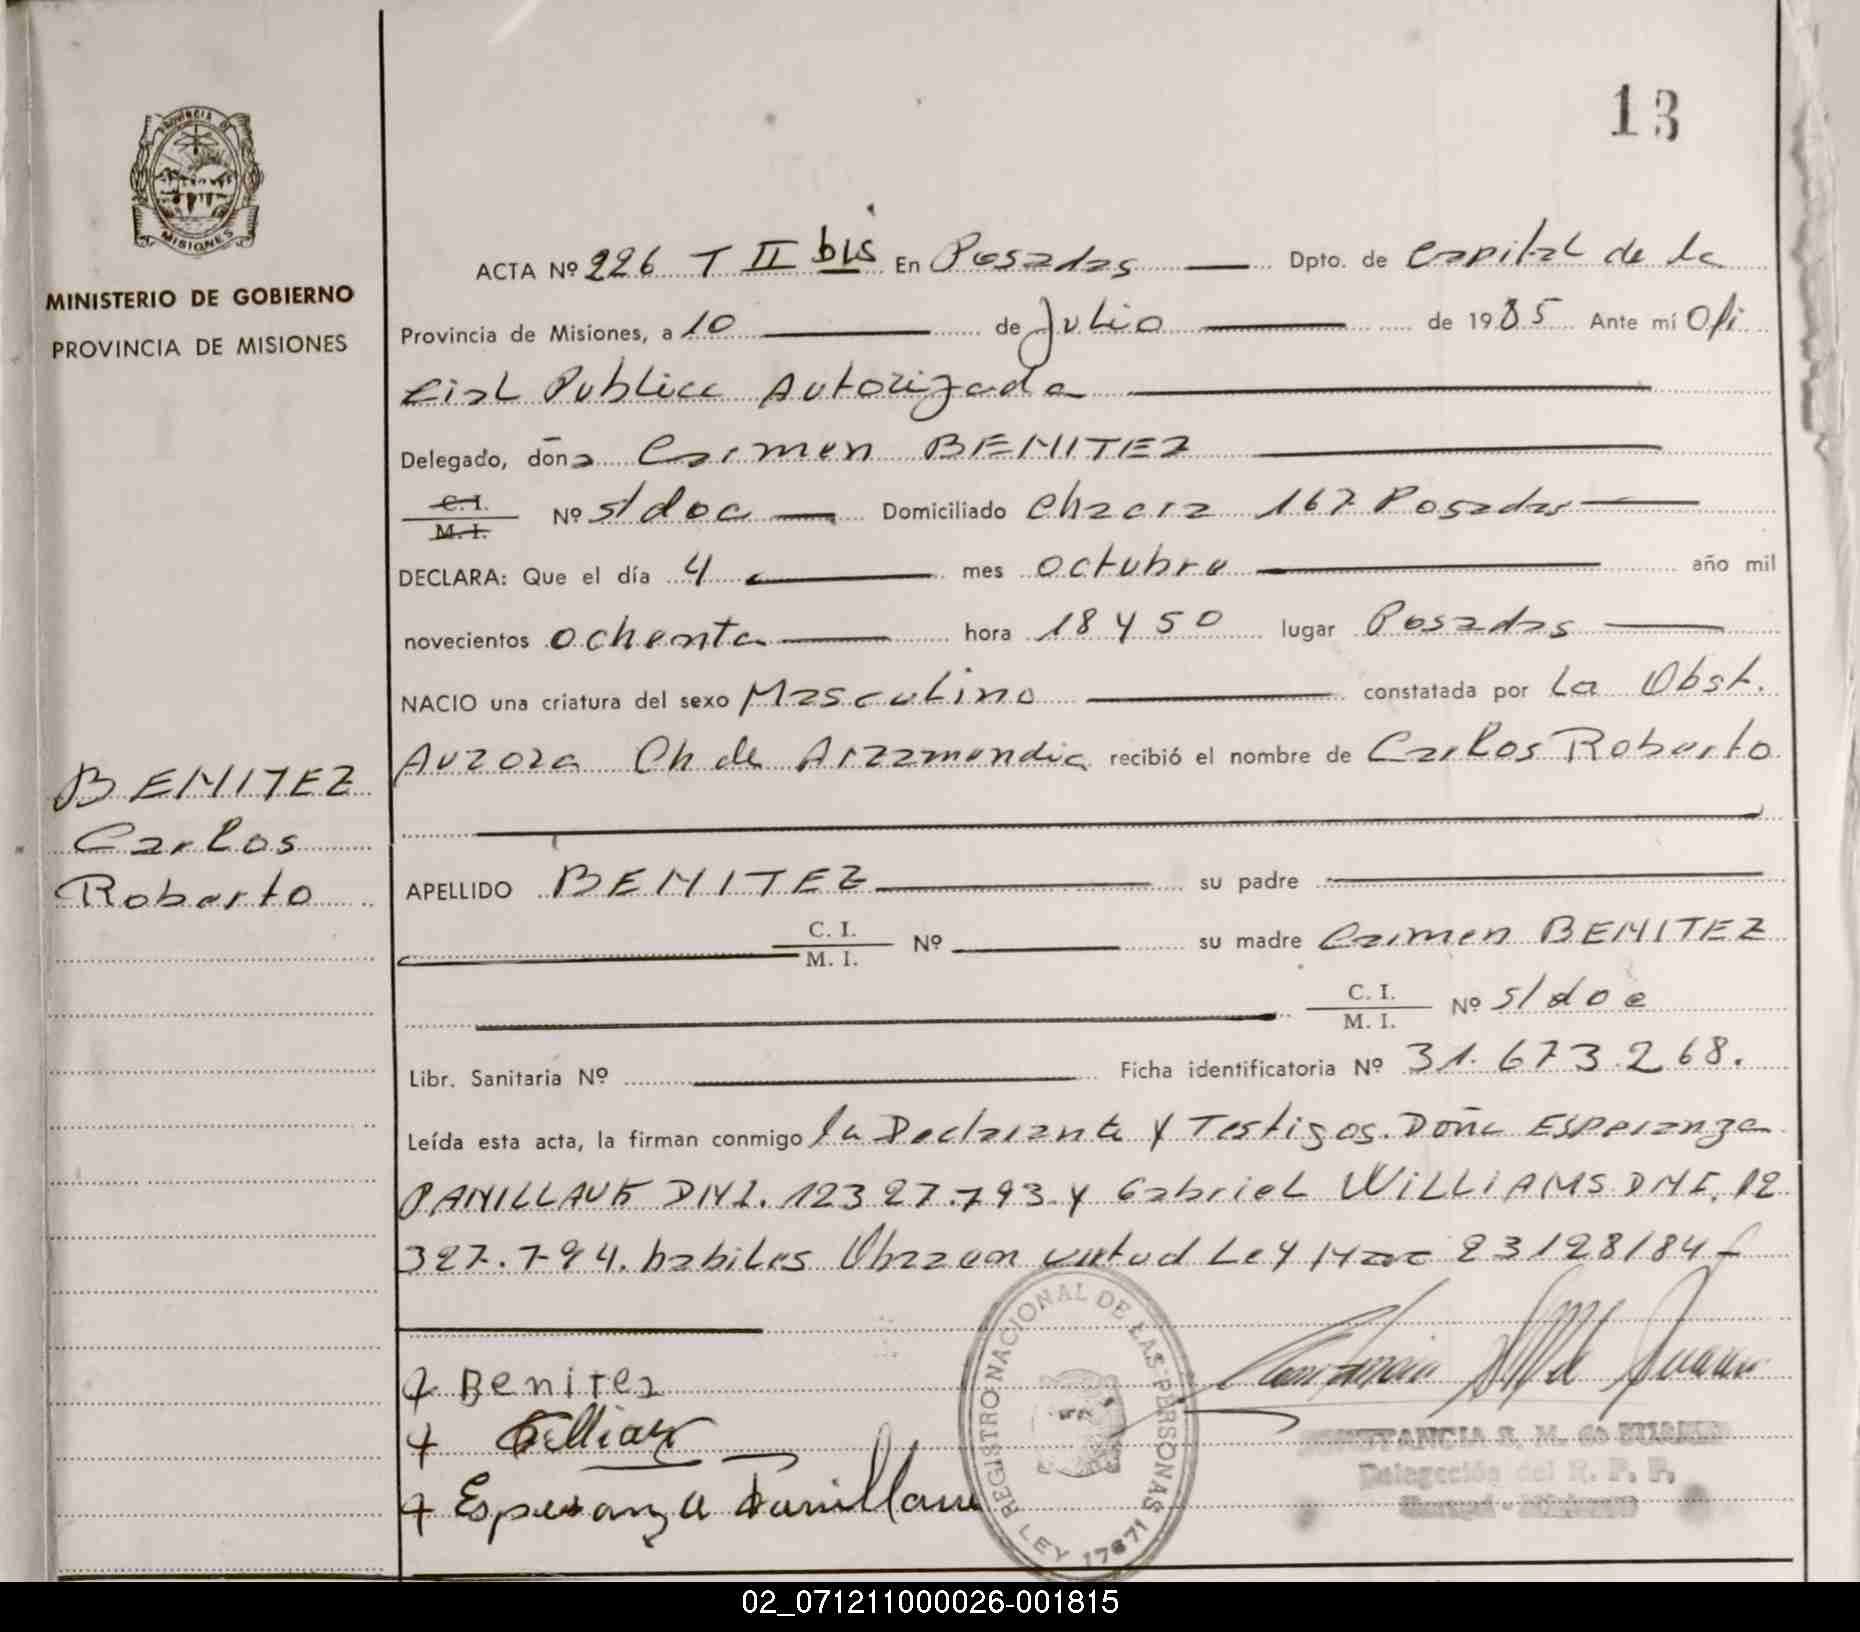 13
PROVINCIA DE
MISIONES
MINISTERIO DE GOBIERNO
PROVINCIA DE MISIONES
ACTA Nº 226 T II bis En Posadas Dpto. de Capital de la
Provincia de Misiones, a 10 de Julio de 1985 Ante mí Ofi
cial Publica Autorizada
Delegado, doña Carmen BENITEZ
C. I.
M. I.
Nº s/doc Domiciliado Chacra 167 Posadas
DECLARA: Que el día 4 mes octubre año mil
novecientos ochenta hora 18 y 50 lugar Posadas
NACIO una criatura del sexo Masculino constatada por la Obst.
Aurora Ch de Arzamendia recibió el nombre de Carlos Roberto
BENITEZ
Carlos
Roberto
APELLIDO BENITEZ su padre
C. I.
M. I.
Nº su madre Carmen BENITEZ
C. I.
M. I.
Nº s/doc
Libr. Sanitaria Nº Ficha identificatoria Nº 31.673.268.
Leída esta acta, la firman conmigo la Declarante y Testigos. Doña Esperanza
DNI. 12327.793 y Gabriel WILLIAMS DNI. 12
327.794. habiles virtud Ley 23128/84
Benitez
Esperanza
REGISTRO NACIONAL DE LAS PERSONAS
LEY 17671
CONSTANCIA S. M. de
Delegación del R. P. P.
02_071211000026-001815